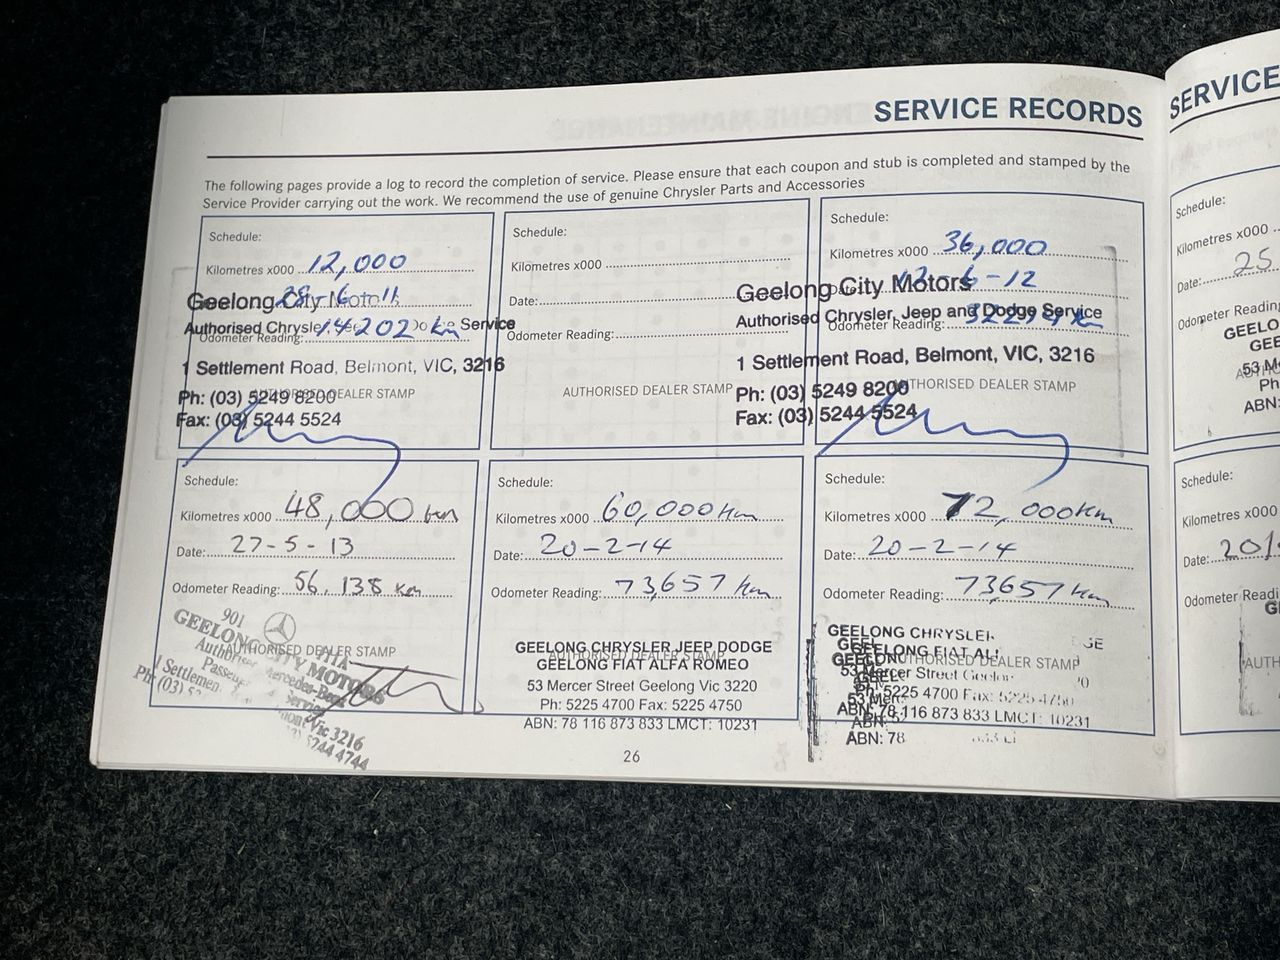 SERVICE RECORDS
The following pages provide a log to record the completion of service. Please ensure that each coupon and stub is completed and stamped by the
Service Provider carrying out the work. We recommend the use of genuine Chrysler Parts and Accessories
Schedule:
Kilometres x000 12,000
Geelong City Motors
Authorised Chrysle Service
Odometer Reading: 14202 km
1 Settlement Road, Belmont, VIC, 3216
AUTHORISED DEALER STAMP
Ph: (03) 5249 8200
Fax: (03) 5244 5524
Schedule:
Kilometres x000
Date:
Odometer Reading:
AUTHORISED DEALER STAMP
Schedule:
Kilometres x000 36,000
Date: -6-12
Geelong City Motors
Authorised Chrysler, Jeep and Dodge Service
Odometer Reading: km
1 Settlement Road, Belmont, VIC, 3216
AUTHORISED DEALER STAMP
Ph: (03) 5249 8200
Fax: (03) 5244 5524
Schedule:
Kilometres x000 48,000 km
Date: 27-5-13
Odometer Reading: 56,138 km
901
GEELONG CITY MOTORS
AUTHORISED DEALER STAMP
Mercedes-Benz
1 Settlemen
Vic 3216
Ph: (03) 5
5244 4744
Schedule:
Kilometres x000 60,000 km
Date: 20-2-14
Odometer Reading: 73,657 km
GEELONG CHRYSLER JEEP DODGE
AUTHORISED DEALER STAMP
GEELONG FIAT ALFA ROMEO
53 Mercer Street Geelong Vic 3220
Ph: 5225 4700 Fax: 5225 4750
ABN: 78 116 873 833 LMCT: 10231
Schedule:
Kilometres x000 72,000 km
Date: 20-2-14
Odometer Reading: 73,657 km
GEELONG CHRYSLER
GEELONG FIAT AL
AUTHORISED DEALER STAMP
53 Mercer Street Geelon
Ph: 5225 4700 Fax: 5225 4750
ABN: 78 116 873 833 LMCT: 10231
ABN: 78
26
SERVICE
Schedule:
Kilometres x000
Date: 25
Odometer Reading
GEELO
GEE
53 M
Ph
ABN:
Schedule:
Kilometres x000
Date: 201
Odometer Readi
G
AUTH